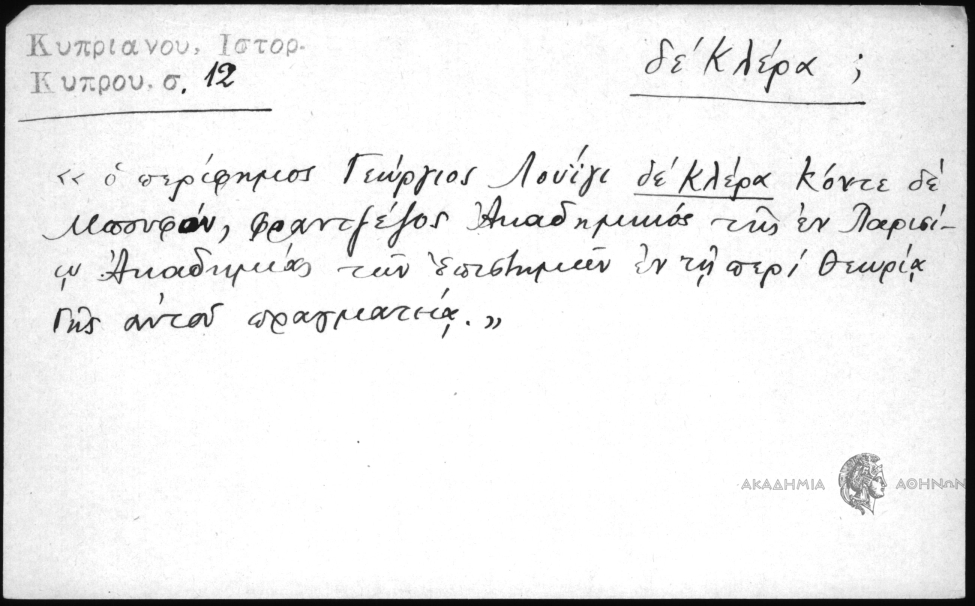 Κυπριανου, Ιστορ.
Κυπρου, σ. 12
δέ Κλέρα ;
« ὁ περίφημος Γεώργιος Λουΐγι δέ Κλέρα Κόντε δέ
Μπουφόν, φραντζέζος Ἀκαδημικός τῆς ἐν Παρισί-
ῳ Ἀκαδημίας τῶν Ἐπιστημῶν ἐν τῇ περί θεωρίᾳ
Γῆς αὐτοῦ πραγματείᾳ. »
ΑΚΑΔΗΜΙΑ ΑΘΗΝΩΝ